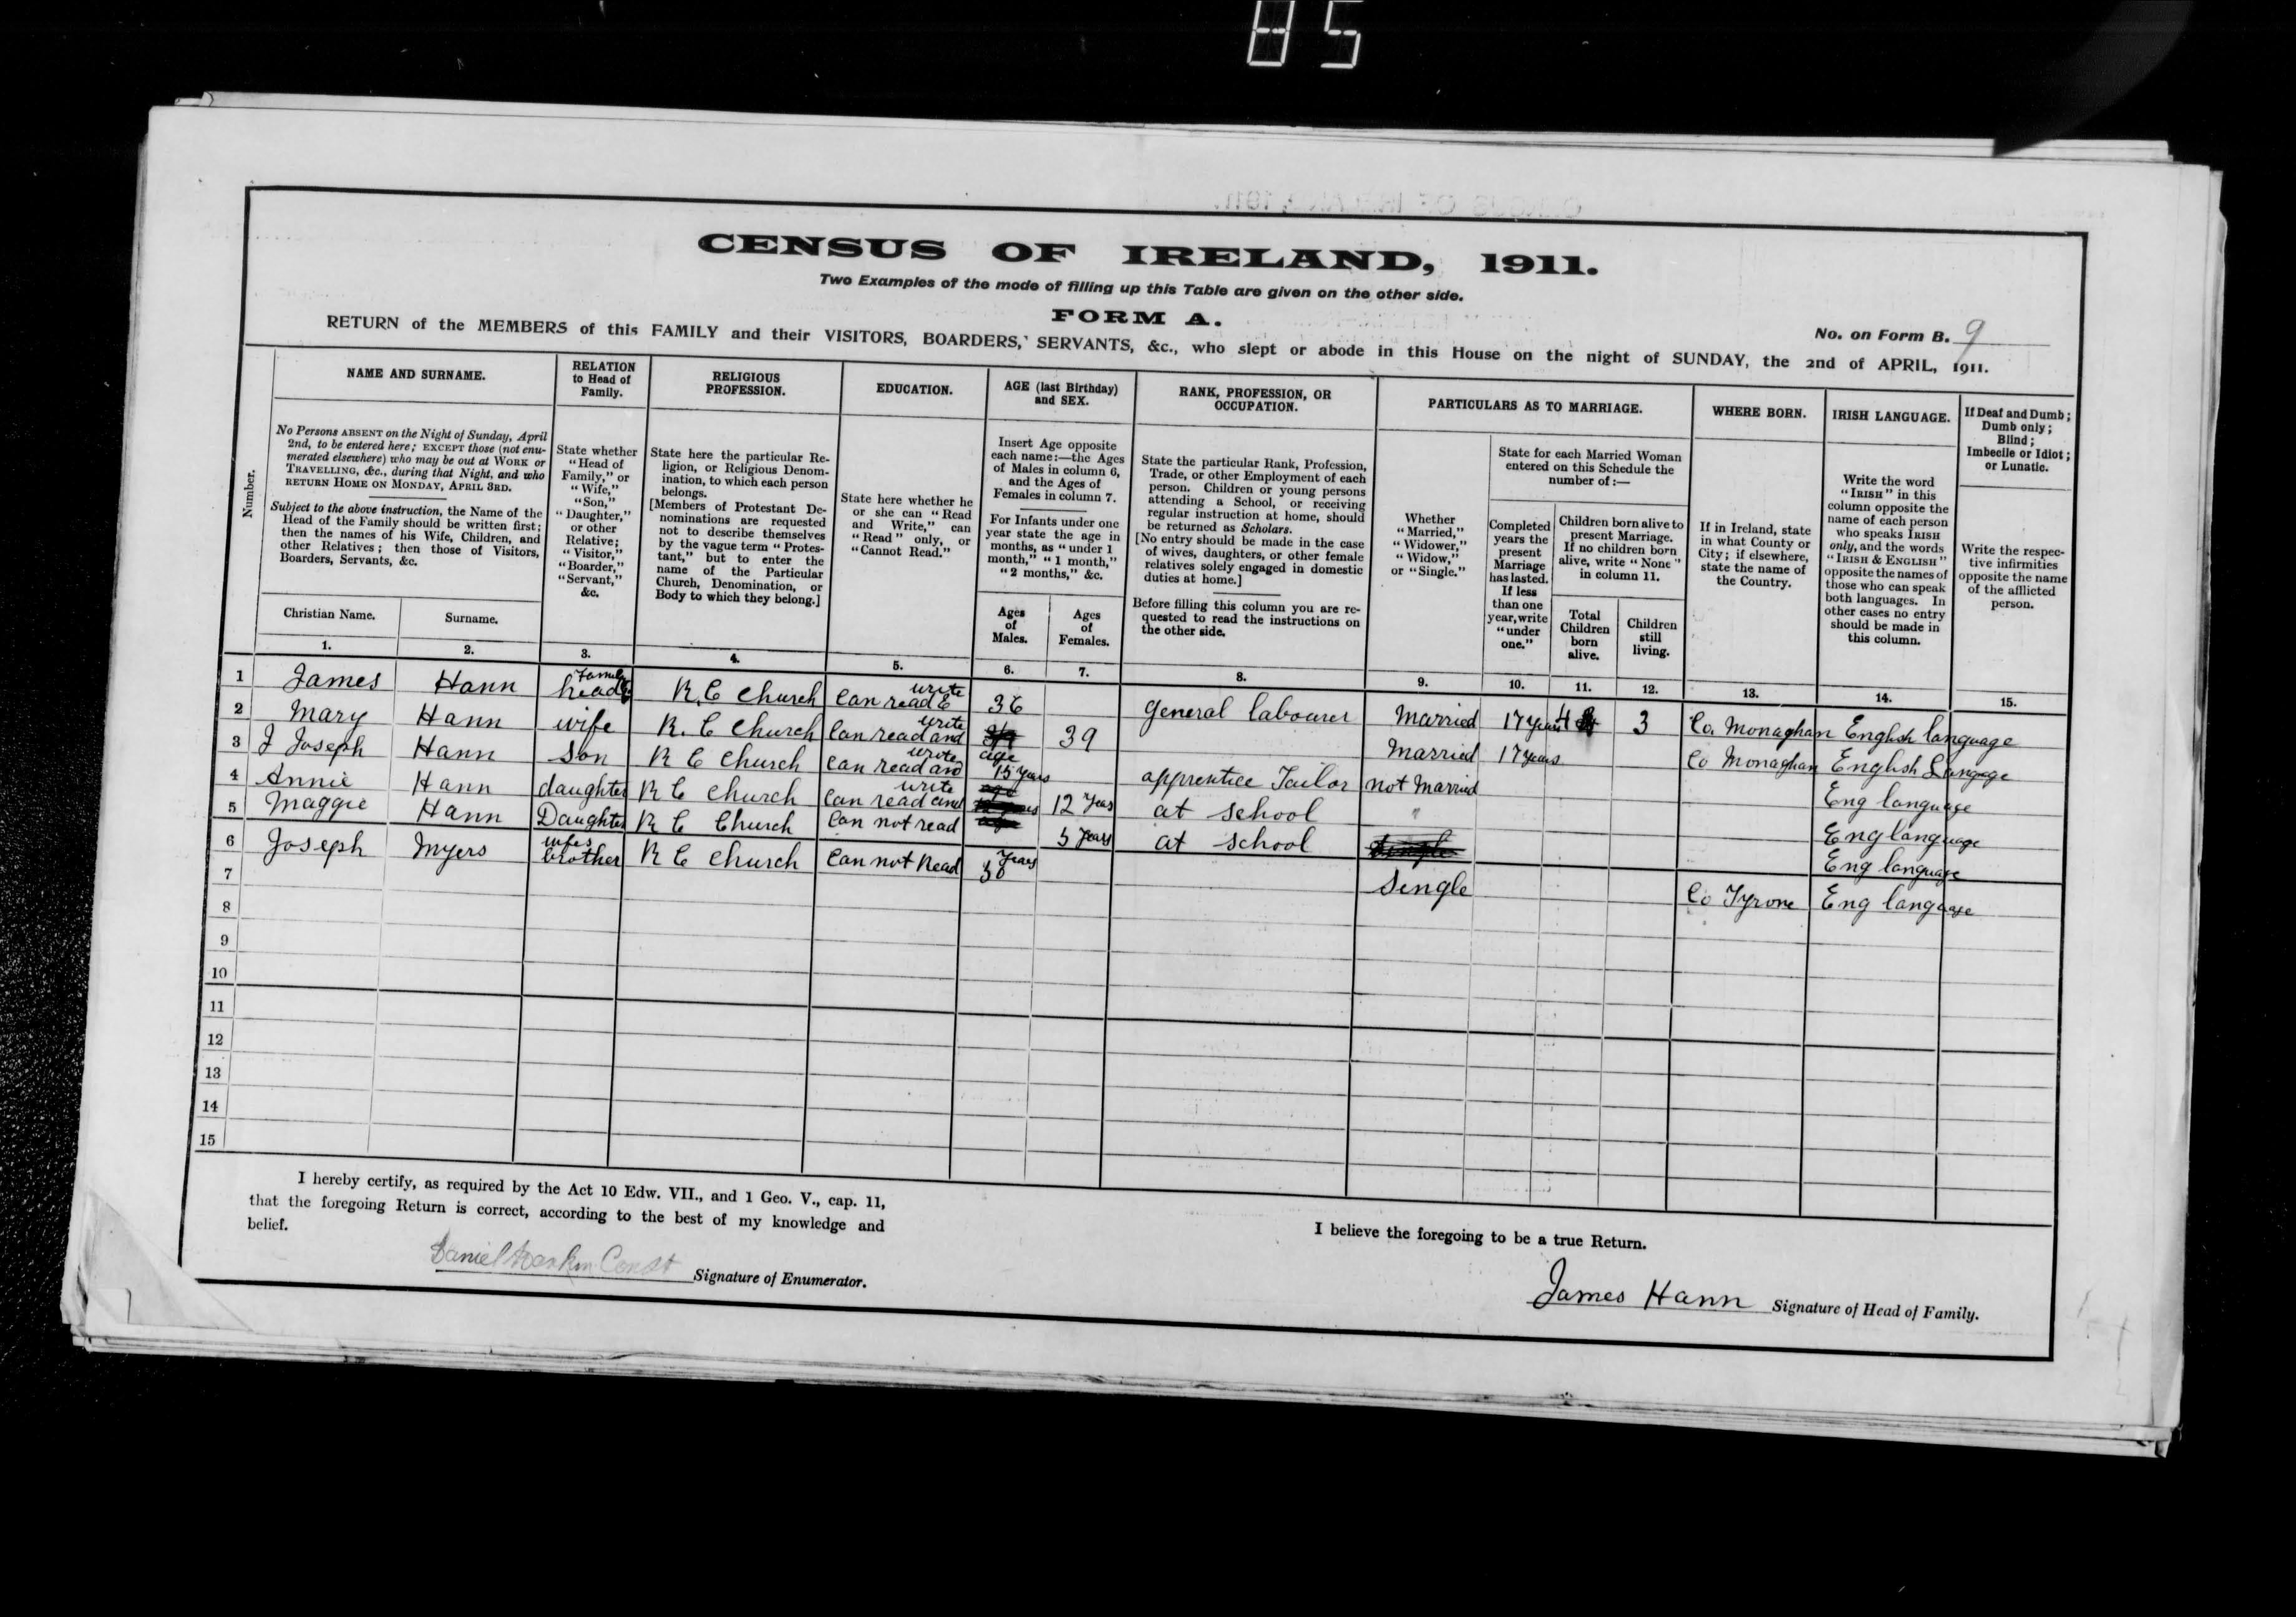 85
CENSUS OF IRELAND, 1911.
Two Examples of the mode of filling up this Table are given on the other side.
FORM A.
No. on Form B. 9
RETURN of the MEMBERS of this FAMILY and their VISITORS, BOARDERS, SERVANTS, &c., who slept or abode in this House on the night of SUNDAY, the 2nd of APRIL, 1911.
Number.
NAME AND SURNAME.
No Persons ABSENT on the Night of Sunday, April
2nd, to be entered here; EXCEPT those (not enu-
merated elsewhere) who may be out at WORK or
TRAVELLING, &c., during that Night, and who
RETURN HOME ON MONDAY, APRIL 3RD.
Subject to the above instruction, the Name of the
Head of the Family should be written first;
then the names of his Wife, Children, and
other Relatives; then those of Visitors,
Boarders, Servants, &c.
Christian Name.
Surname.
1.
2.
RELATION
to Head of
Family.
State whether
"Head of
Family," or
"Wife,"
"Son,"
"Daughter,"
or other
Relative;
"Visitor,"
"Boarder,"
"Servant,"
&c.
3.
RELIGIOUS
PROFESSION.
State here the particular Re-
ligion, or Religious Denom-
ination, to which each person
belongs.
[Members of Protestant De-
nominations are requested
not to describe themselves
by the vague term "Protes-
tant," but to enter the
name of the Particular
Church, Denomination, or
Body to which they belong.]
4.
EDUCATION.
State here whether he
or she can "Read
and Write," can
"Read" only, or
"Cannot Read."
5.
AGE (last Birthday)
and SEX.
Insert Age opposite
each name:—the Ages
of Males in column 6,
and the Ages of
Females in column 7.
For Infants under one
year state the age in
months, as "under 1
month," "1 month,"
"2 months," &c.
Ages
of
Males.
Ages
of
Females.
6.
7.
RANK, PROFESSION, OR
OCCUPATION.
State the particular Rank, Profession,
Trade, or other Employment of each
person. Children or young persons
attending a School, or receiving
regular instruction at home, should
be returned as Scholars.
[No entry should be made in the case
of wives, daughters, or other female
relatives solely engaged in domestic
duties at home.]
Before filling this column you are re-
quested to read the instructions on
the other side.
8.
PARTICULARS AS TO MARRIAGE.
Whether
"Married,"
"Widower,"
"Widow,"
or "Single."
9.
State for each Married Woman
entered on this Schedule the
number of:—
Completed
years the
present
Marriage
has lasted.
If less
than one
year, write
"under
one."
10.
Children born alive to
present Marriage.
If no children born
alive, write "None"
in column 11.
Total
Children
born
alive.
11.
Children
still
living.
12.
WHERE BORN.
If in Ireland, state
in what County or
City; if elsewhere,
state the name of
the Country.
13.
IRISH LANGUAGE.
Write the word
"IRISH" in this
column opposite the
name of each person
who speaks IRISH
only, and the words
"IRISH & ENGLISH"
opposite the names of
those who can speak
both languages. In
other cases no entry
should be made in
this column.
14.
If Deaf and Dumb;
Dumb only;
Blind;
Imbecile or Idiot;
or Lunatic.
Write the respec-
tive infirmities
opposite the name
of the afflicted
person.
15.
1 James Hann head Family R.C Church Can read & write 36 general labourer Married 17 years 4 3 Co. Monaghan English language
2 Mary Hann wife R.C Church Can read and write 39 Married 17 years Co Monaghan English Language
3 J Joseph Hann son R C Church Can read and write age 15 years apprentice Tailor not Married Eng language
4 Annie Hann daughter R C Church Can read and write 12 years at school " Eng language
5 Maggie Hann Daughter R C Church Can not read 5 years at school Eng language
6 Joseph Myers wifes brother R C Church Can not Read 30 years single Co Tyrone Eng language
7
8
9
10
11
12
13
14
15
I hereby certify, as required by the Act 10 Edw. VII., and 1 Geo. V., cap. 11,
that the foregoing Return is correct, according to the best of my knowledge and
belief.
Daniel Const Signature of Enumerator.
I believe the foregoing to be a true Return.
James Hann Signature of Head of Family.